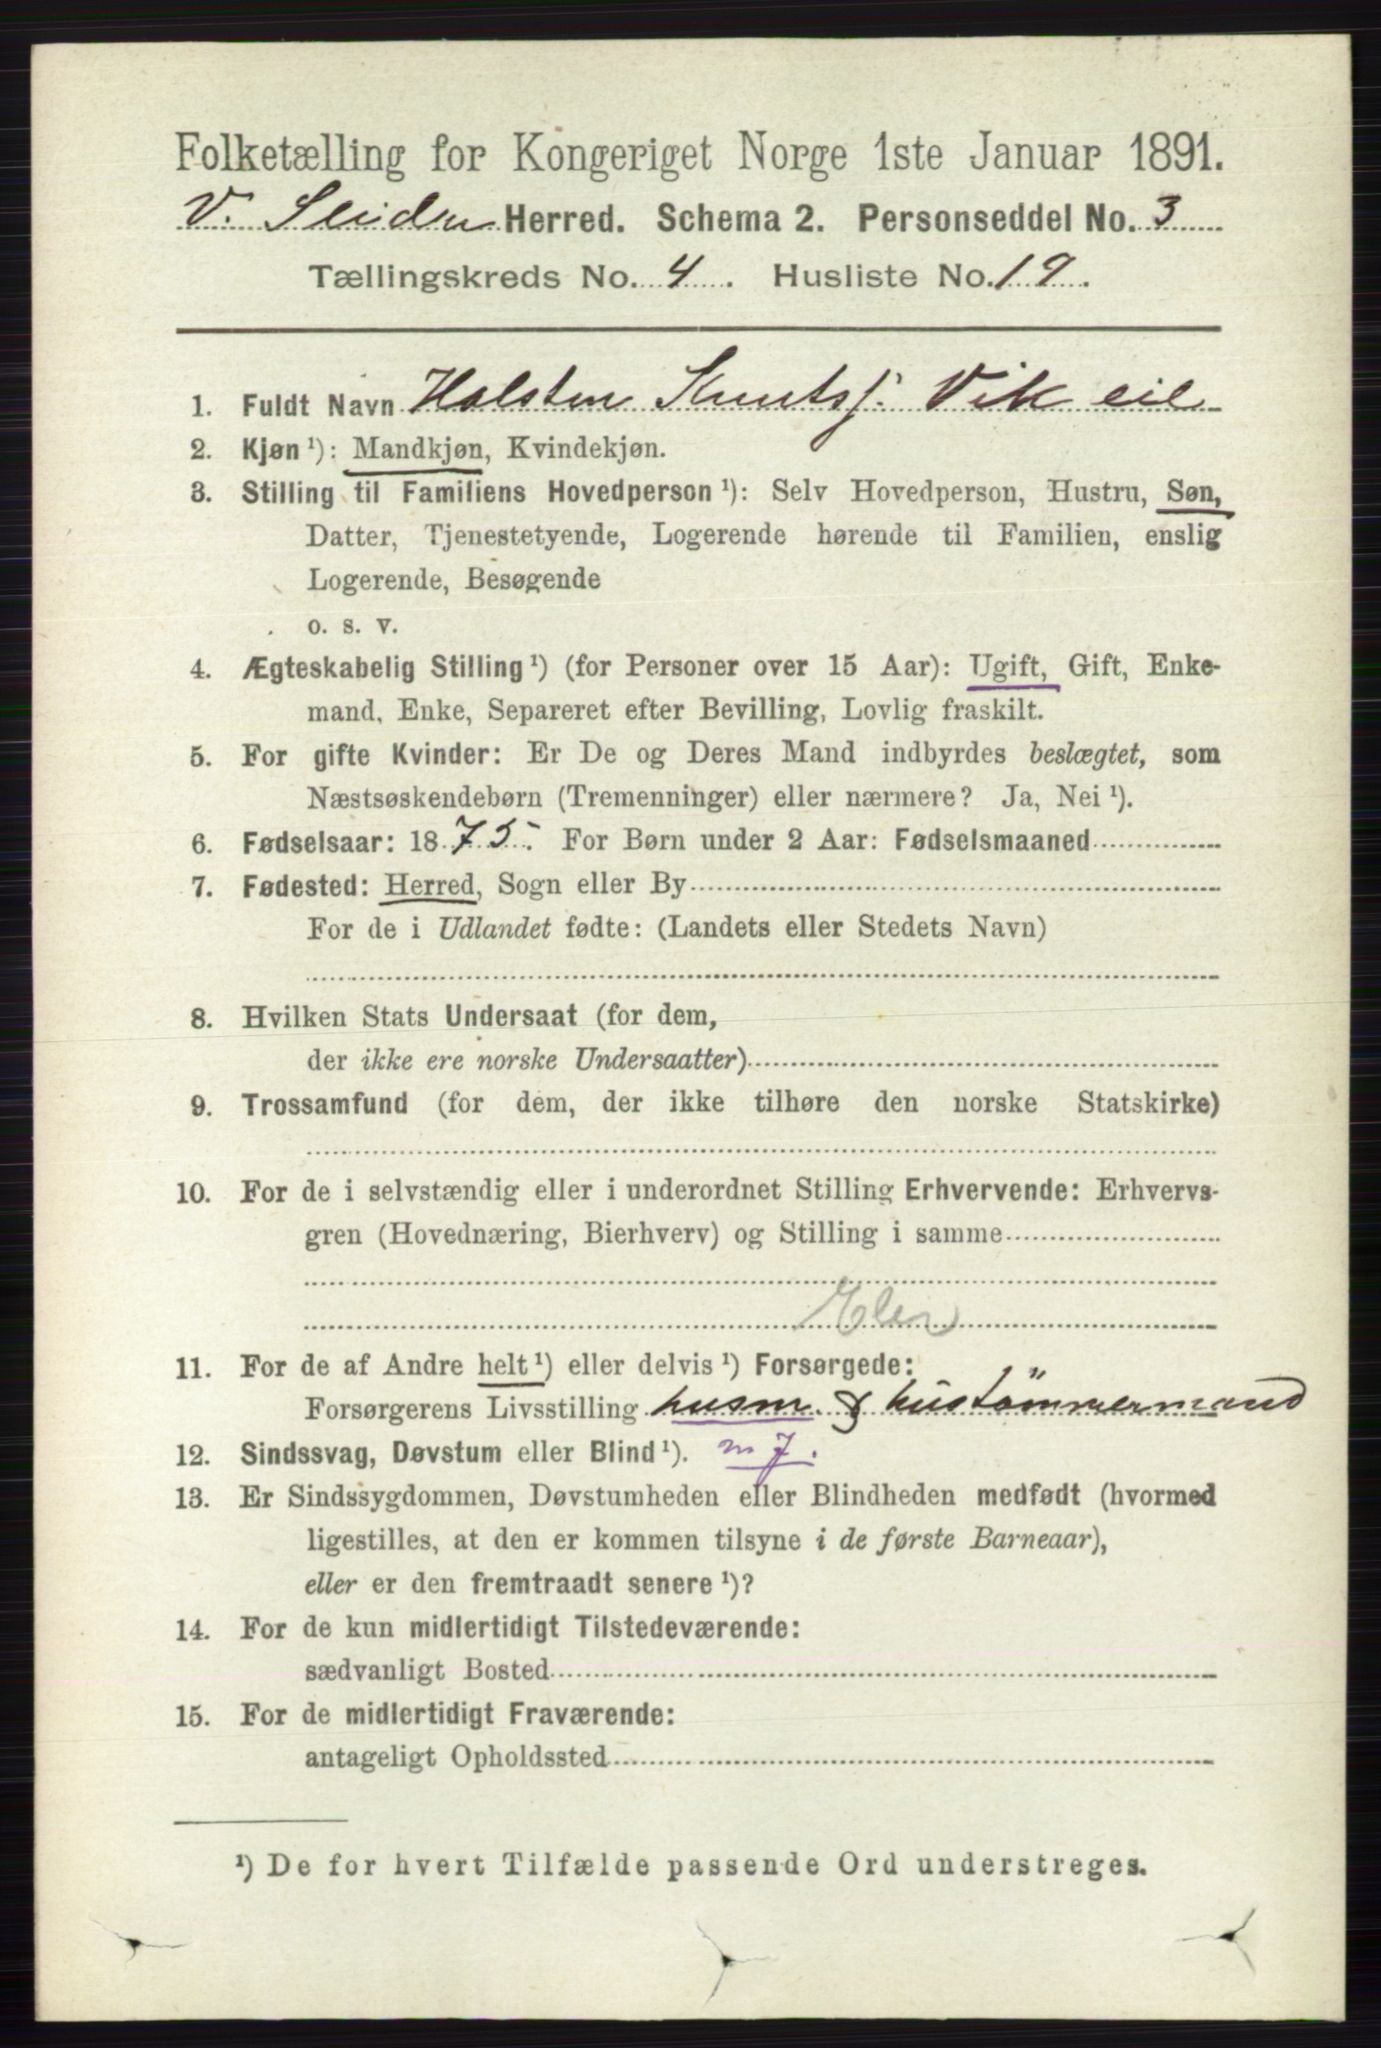 Folketælling for Kongeriget Norge 1ste Januar 1891.
V. Slidre Herred. Schema 2. Personseddel No. 3
Tællingskreds No. 4. Husliste No. 19.
1. Fuldt Navn Halsten Knuts. Vik eie
2. Kjøn ¹): Mandkjøn, Kvindekjøn.
3. Stilling til Familiens Hovedperson ¹): Selv Hovedperson, Hustru, Søn,
Datter, Tjenestetyende, Logerende hørende til Familien, enslig
Logerende, Besøgende
o. s. v.
4. Ægteskabelig Stilling ¹) (for Personer over 15 Aar): Ugift, Gift, Enke-
mand, Enke, Separeret efter Bevilling, Lovlig fraskilt.
5. For gifte Kvinder: Er De og Deres Mand indbyrdes beslægtet, som
Næstsøskendebørn (Tremenninger) eller nærmere? Ja, Nei ¹).
6. Fødselsaar: 1875. For Børn under 2 Aar: Fødselsmaaned
7. Fødested: Herred, Sogn eller By
For de i Udlandet fødte: (Landets eller Stedets Navn)
8. Hvilken Stats Undersaat (for dem,
der ikke ere norske Undersaatter)
9. Trossamfund (for dem, der ikke tilhøre den norske Statskirke)
10. For de i selvstændig eller i underordnet Stilling Erhvervende: Erhvervs-
gren (Hovednæring, Bierhverv) og Stilling i samme
Elev
11. For de af Andre helt ¹) eller delvis ¹) Forsørgede:
Forsørgerens Livsstilling husm. & hustömmermand
12. Sindssvag, Døvstum eller Blind ¹). m j.
13. Er Sindssygdommen, Døvstumheden eller Blindheden medfødt (hvormed
ligestilles, at den er kommen tilsyne i de første Barneaar),
eller er den fremtraadt senere ¹)?
14. For de kun midlertidigt Tilstedeværende:
sædvanligt Bosted
15. For de midlertidigt Fraværende:
antageligt Opholdssted
¹) De for hvert Tilfælde passende Ord understreges.